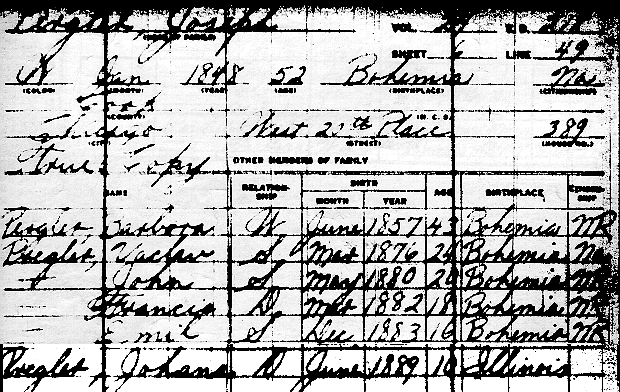 Joseph VOL. E.D.
SHEET 6 LINE 49
W Jan 1848 52 Bohemia Na
(COLOR) (MONTH) (YEAR) (AGE) (BIRTHPLACE) (CITIZENSHIP)
Cook
(COUNTY)
Chicago West 20th Place 389
(CITY) (STREET) (HOUSE NO.)
True Copy OTHER MEMBERS OF FAMILY
NAME RELATIONSHIP BIRTH MONTH YEAR AGE BIRTHPLACE CITIZENSHIP
Pergler, Barbora W June 1857 43 Bohemia NR
Pregler, Vaclav S Mar 1876 24 Bohemia Na
John S May 1880 20 Bohemia NR
Francis D Mar 1882 18 Bohemia NR
Emil S Dec 1883 16 Bohemia NR
Pregler, Johana D June 1889 10 Illinois